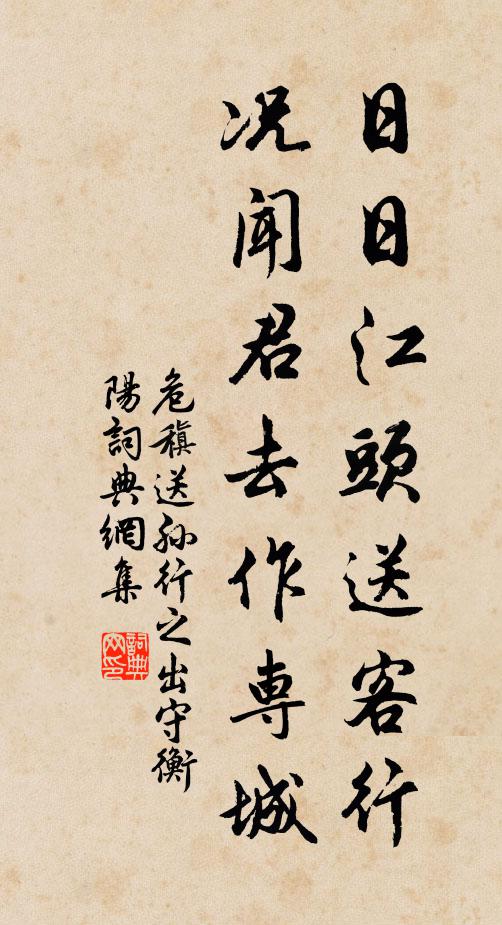 日日江頭送客行
况聞君去作専城
危稹送孙行之出守衡
陽詞典網集
詞典
网印